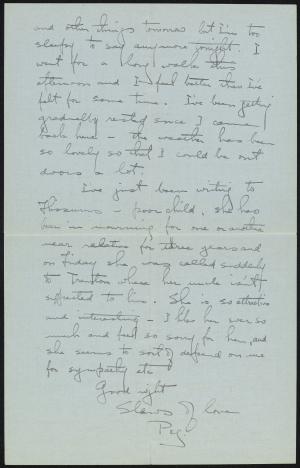 and other things tomorrow but I'm too
sleepy to say anymore tonight. I
went for a long walk this
afternoon and I feel better than I've
felt for some time. I've been getting
gradually rested since I came
back here - the weather has been
so lovely so that I could be out
doors a lot.
I've just been writing to
- poor child, she has
been in mourning for one or another
near relative for three years and
on Friday she was called suddenly
to Trenton where her uncle isn't
expected to live. She is so attractive
and interesting - I like her ever so
much and feel so sorry for her, and
she seems to sort of depend on me
for sympathy etc.
Good night
Slews of love
Peg.